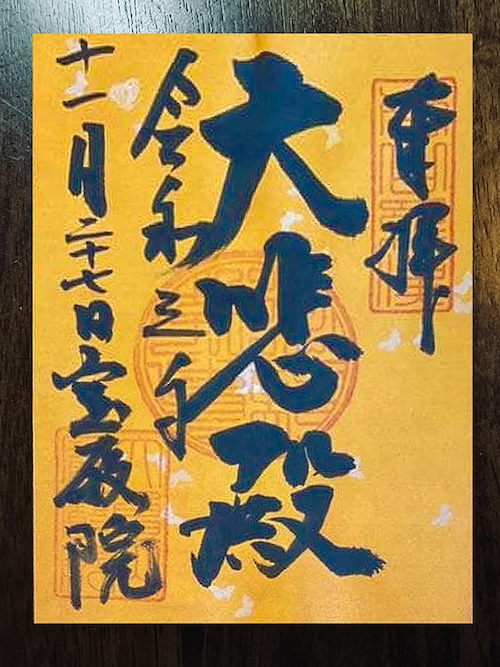 奉拝
大悲殿
令和三年
十一月二十七日宝厳院